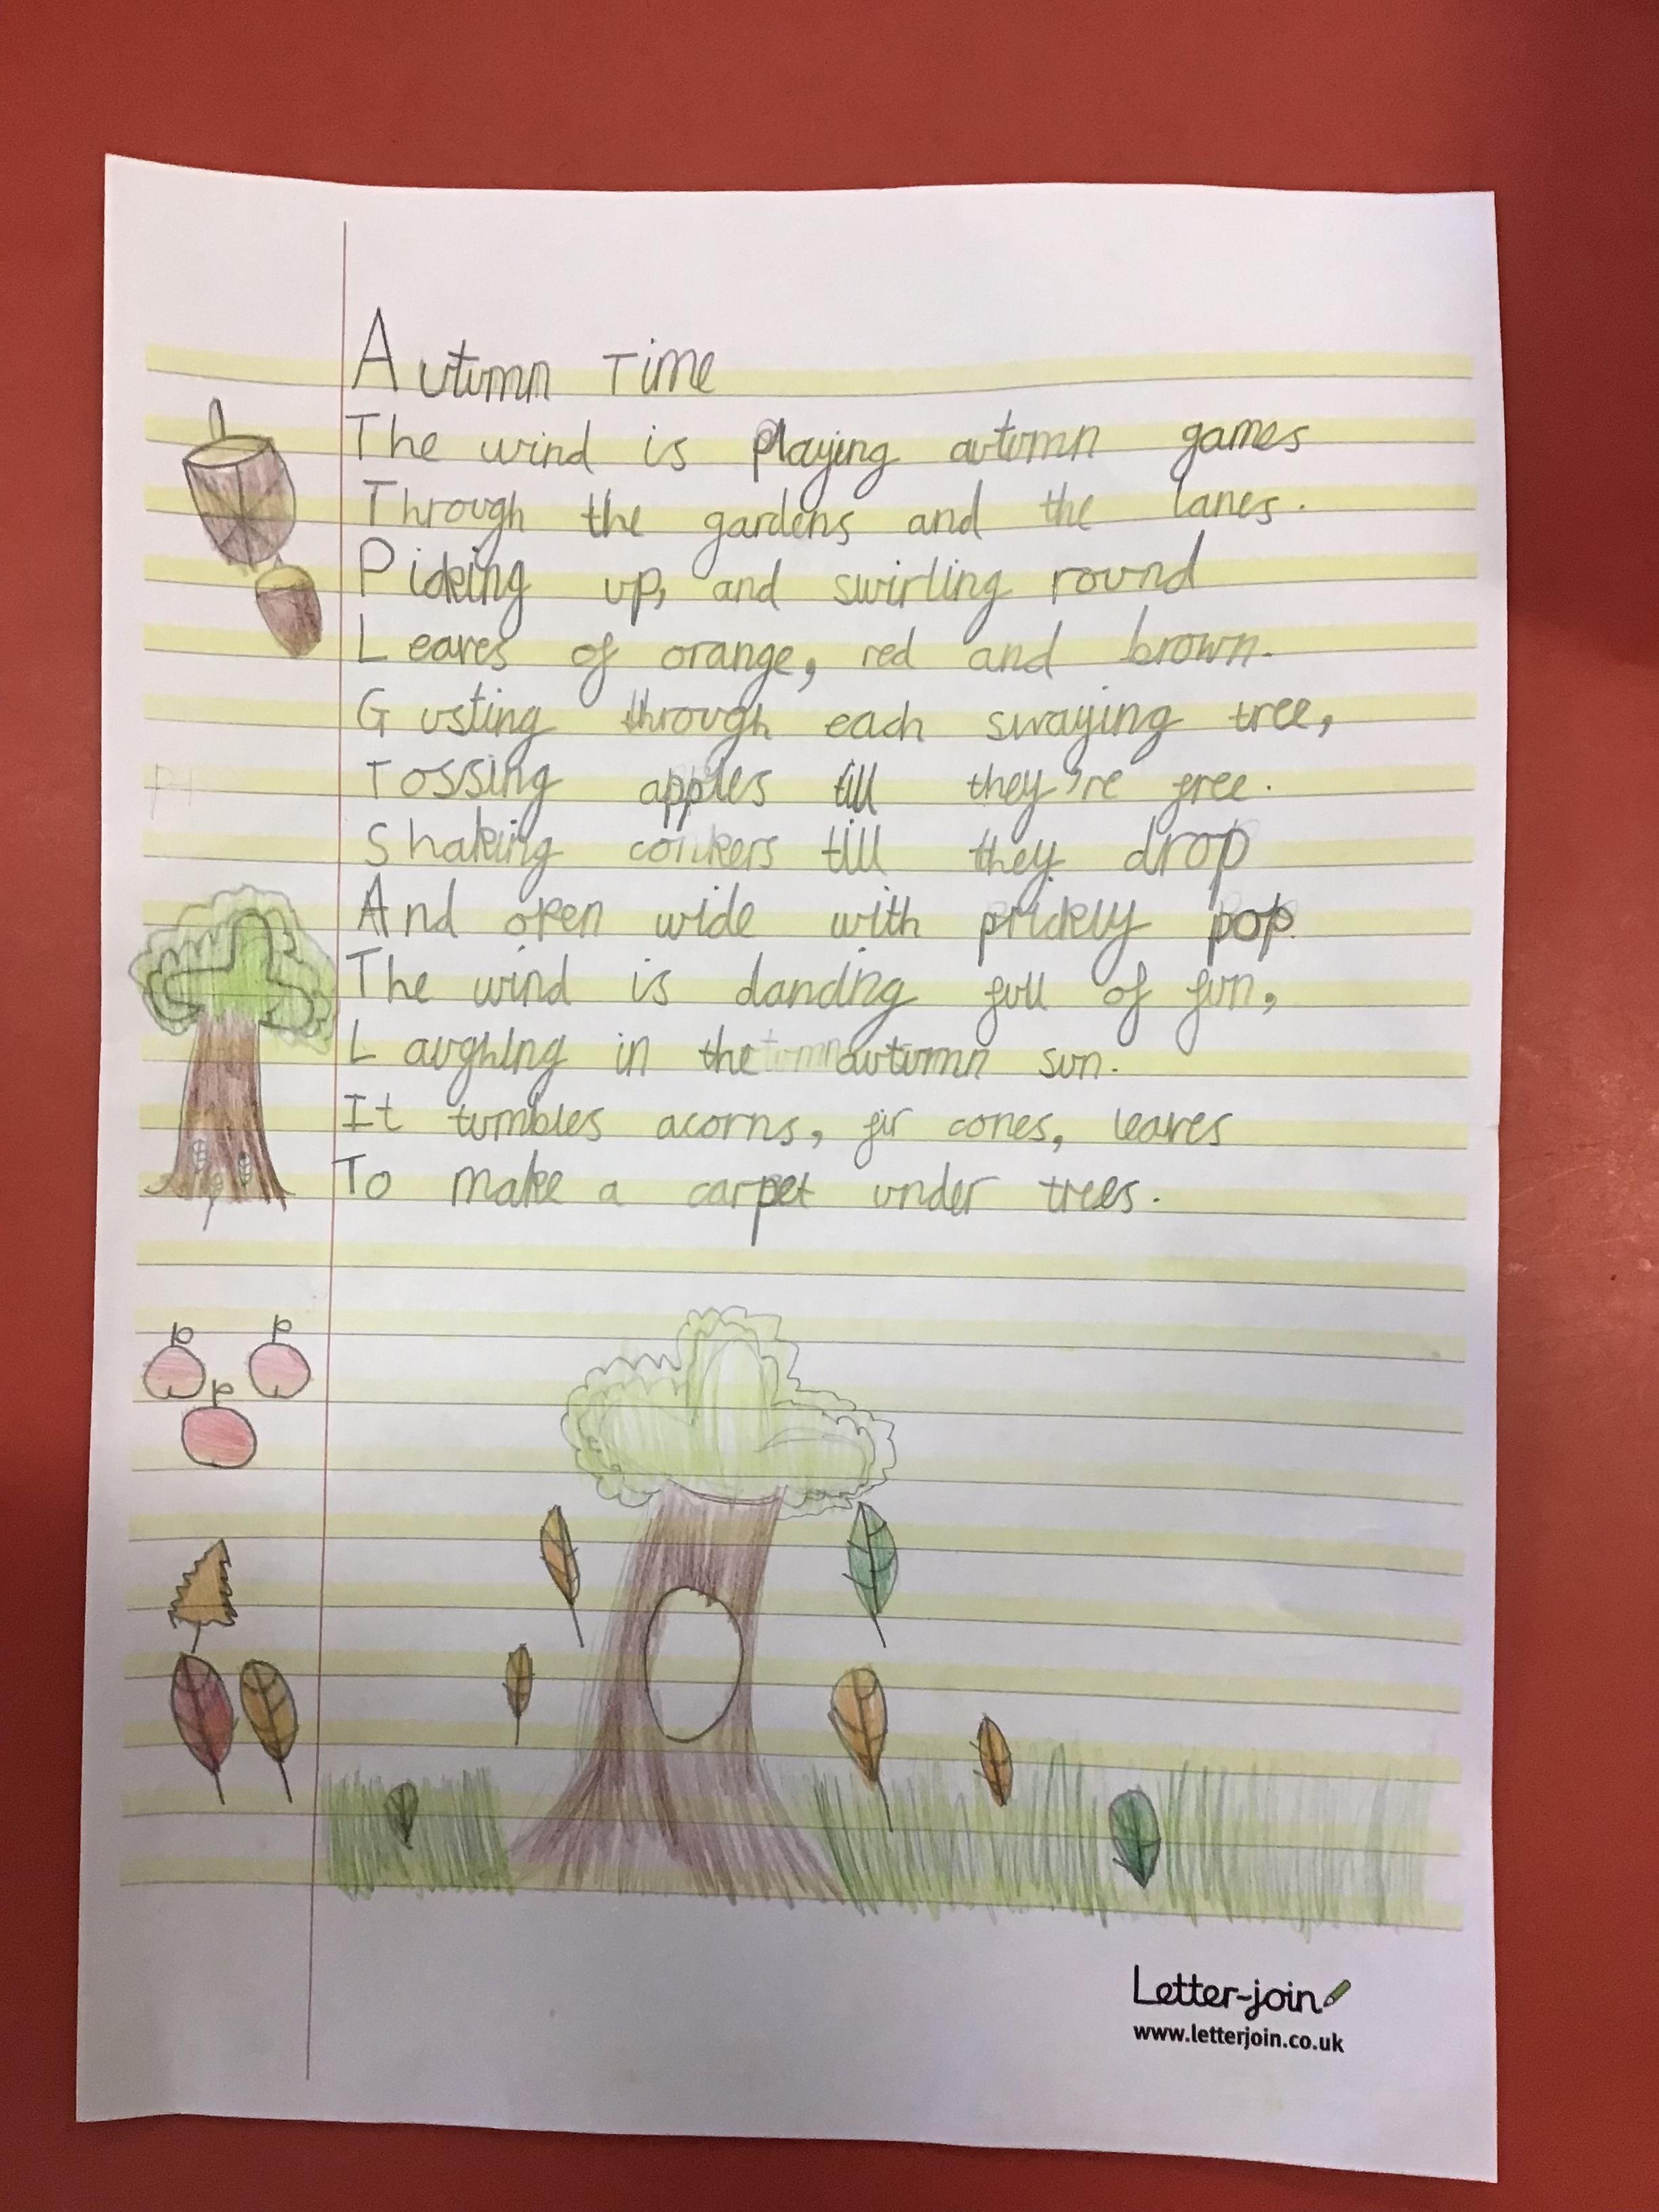 Autumn Time
The wind is playing autumn games
Through the gardens and the lanes.
Picking up, and swirling round
Leaves of orange, red and brown.
Gusting through each swaying tree,
Tossing apples till they're free.
Shaking conkers till they drop
And open wide with prickly pop.
The wind is dancing full of fun,
Laughing in the autumn sun.
It tumbles acorns, fir cones, leaves
To make a carpet under trees.
Letter-join
www.letterjoin.co.uk